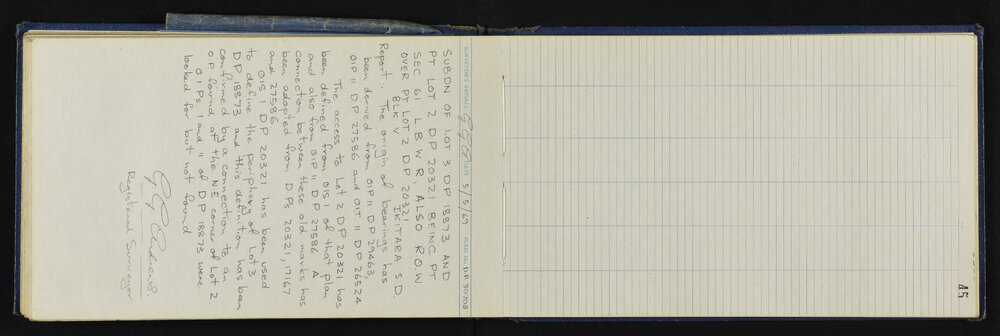 SURVEYOR'S INITIALS DATE 5/5/69 PLAN No. D.P. 30708
SUBDN OF LOT 3 DP 18873 AND
PT LOT 2 DP 20321 BEING PT
SEC 61 L B W R, ALSO R.O.W
OVER PT LOT 2 DP 20321
BLK V IKITARA S.D
Report. The origin of bearings has
been derived from OIP II DP 29463,
OIP II DP 27586 and OIT II DP 26524.
The access to Lot 2 DP 20321 has
been defined from OIS I of that plan
and also from OIP II DP 27586. A
connection between these old marks has
been adopted from DPs 20321, 17167
and 27586
OIS I DP 20321 has been used
to define the periphery of Lot 3
DP 18873 and this definition has been
confirmed by a connection to an
O.P. found at the N.E corner of Lot 2
OIPs I and II of DP 18873 were
looked for but not found
Registered Surveyor
45